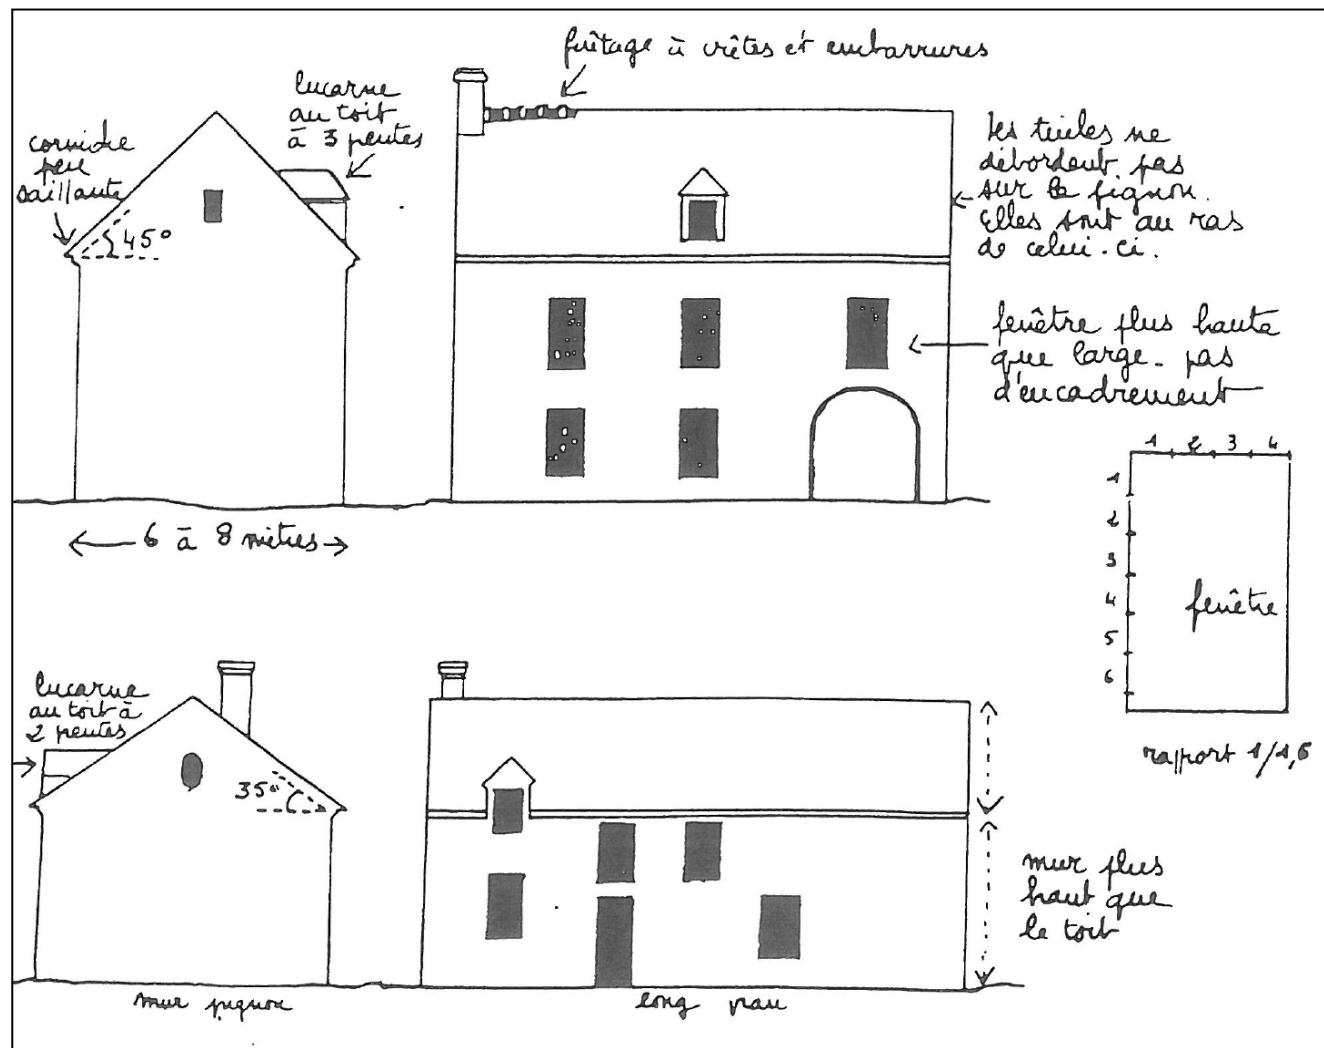 faîtage à crêtes et embarrures
lucarne
au toit
à 3 pentes
corniche
peu
saillante
45°
les tuiles ne
débordent pas
sur le pignon.
Elles sont au ras
de celui-ci.
fenêtre plus haute
que large - pas
d'encadrement
6 à 8 mètres
1 2 3 4
1
2
3
4
5
6
fenêtre
rapport 1/1,6
lucarne
au toit à
2 pentes
35°
mur plus
haut que
le toit
mur pignon
long pan